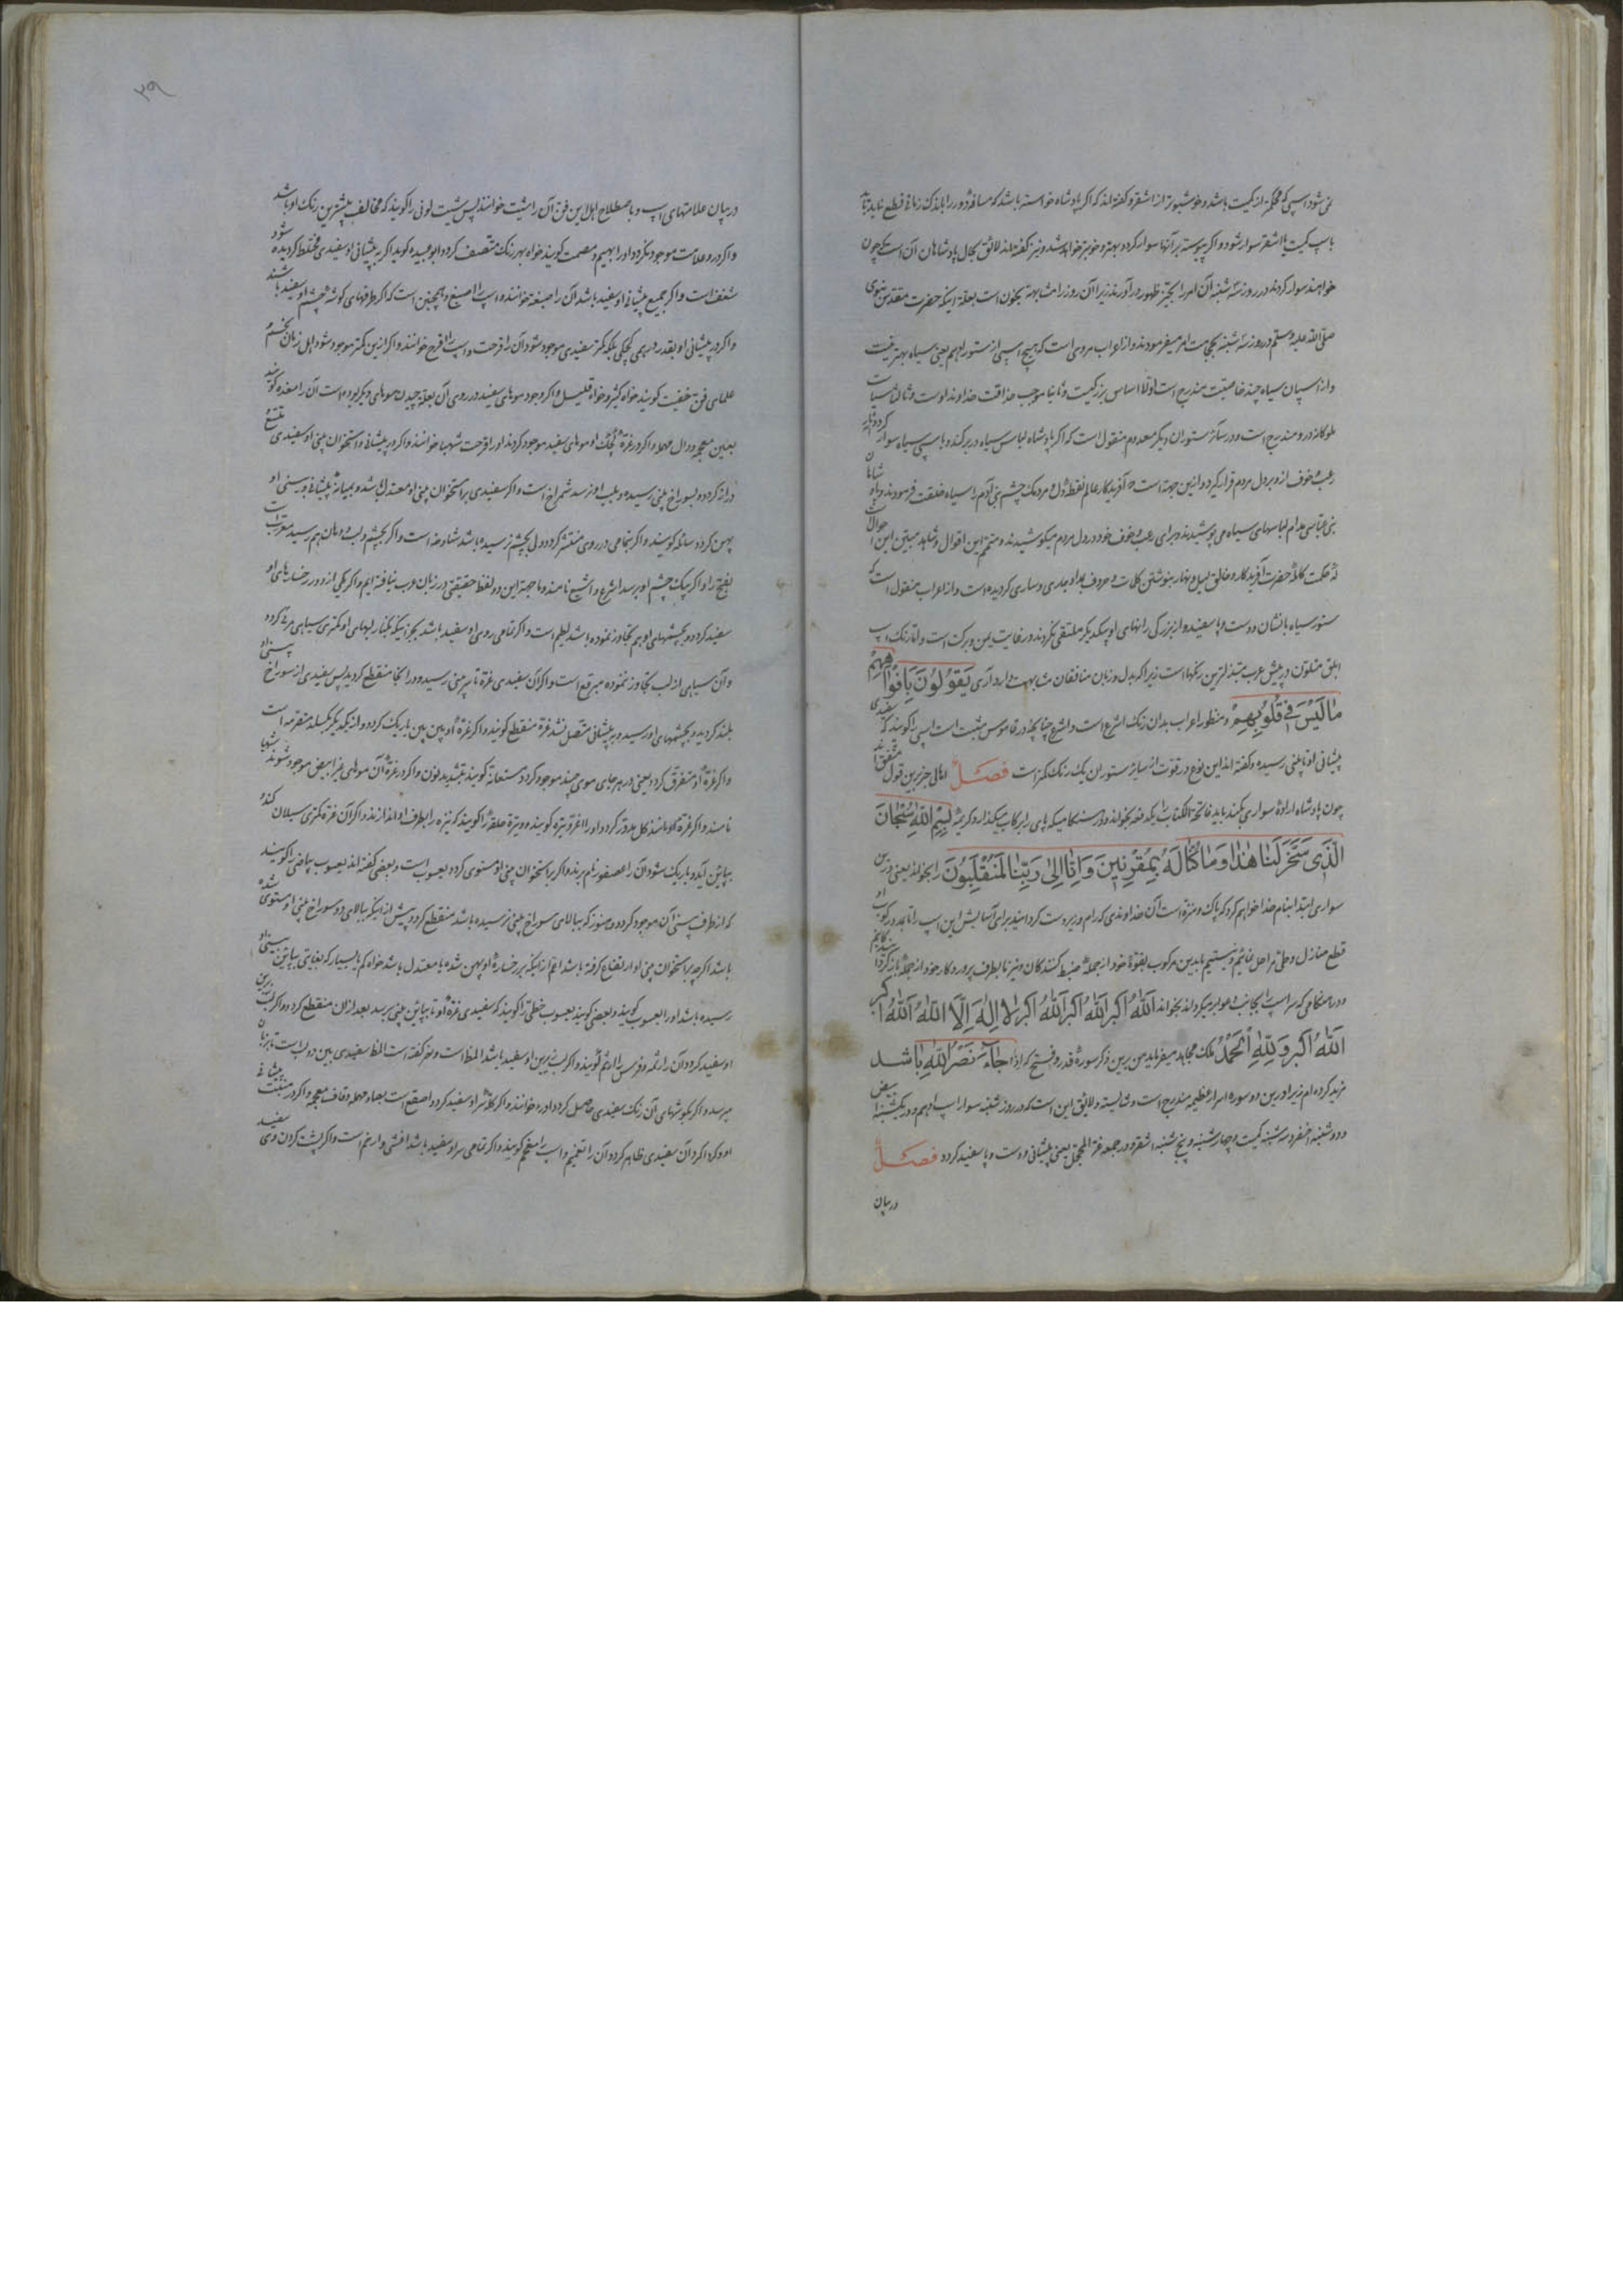 نمی‌شود اسپی که محکم‌تر از کمیت باشد و خوشبوتر از اشقر و گفته‌اند که اگر پادشاه خواسته باشد که مسافهٔ دور را باندک زمانی قطع نماید باید
باسپ کمیت یا اشقر سوار شود و اگر پیوسته بر آنها سوار گردد بهتر و خوبتر خواهد شد و نیز گفته‌اند لائق بحال پادشاهان آن است که چون
خواهند سوار گردند در روز سه شنبه آن امر را بحیز ظهور در آورند زیرا آن روز را مشابهت بخون است بعلة اینکه حضرت مقدس نبوی
صلی الله علیه وسلم در روز سه شنبه بحجامت امر میفرمودند و از اعراب مروی است که هیچ اسپی از ستور ادهم یعنی سیاه بهتر نیست
و از اسپان سیاه چند خاصیت مندرج است اولا اساس بزرگیست و ثانیا موجب صداقت خداوند اوست و ثالثا
ملوکانه در و مندرج است و در سائر ستوران دیگر معدوم منقول است که اگر پادشاه لباس سیاه در بر کند و باسپی سیاه سوار گردد
رعب و خوف از و بر دل مردم قرار گیرد و ازین جهة است آفریدگار عالم نقطهٔ دل و مردمک چشم بنی آدم را سیاه خلقت فرمودند
بنی عباسی مدام لباسهای سیاه می پوشیدند و برای رعب و خوف خود در دل مردم میکوشیدند و متمم این اقوال و شاهد مبین این احوال
حکمت کاملهٔ حضرت آفریدگار و خالق لیل و نهار بنوشتن کلمات و حروف بمداد جاری و ساری گردیده است و از اعراب منقول است که
ستور سیاه با نشان دست و پا سفید و از بزرگی رانهای او بیکدیگر ملتقی نگردند در غایت یمن و برکت است و اما رنگ اسپ
ابلق متلون در پیش عرب مبتذل ترین رنگها است زیرا که بدل و زبان منافقان مشابهت دارد آری یَقُولُونَ بِأَفْوَاهِهِمْ
مَا لَیْسَ فِی قُلُوبِهِمْ و منظور اعراب بدان رنگ اشرع است و اشرع چنانچه در قاموس مثبت است اسپی را گویند که سفیدی
پیشانی او تا بینی رسیده و گفته‌اند این نوع در قوت از سایر ستوران یک رنگ کمتر است فصل اهالی حزیرین قول متفق‌اند
چون پادشاه ارادهٔ سواری بکند باید فاتحة الکتاب را یکدفعه بخواند و در هنگامیکه پای را برکاب میگذارد کریمهٔ بِسْمِ اللهِ سُبْحَانَ
الَّذِی سَخَّرَ لَنَا هٰذَا وَمَا کُنَّا لَهُ مُقْرِنِینَ وَإِنَّا إِلٰی رَبِّنَا لَمُنْقَلِبُونَ را بخواند یعنی درین
سواری ابتدا بنام خدا خواهم کرد که پاک و منزه است آن خداوندی که رام و زبردست گردانید برای آسایش این اسپ را تا بمدد رکوب او
قطع منازل و طی مراحل نمائیم و نیستیم ما بدین مرکوب بقوهٔ خود از جملهٔ ضبط کنندگان و نیز ما بطرف پروردگار خود از جملهٔ بازگردندگانیم
و در هنگامی که سر اسپ را بجانب عوابر میگرداند بخواند اَللهُ اَکْبَرُ اَللهُ اَکْبَرُ اَللهُ اَکْبَرُ لَا اِلٰهَ اِلَّا اللهُ اَللهُ اَکبر
اَللهُ اَکْبَرُ وَلِلّٰهِ الْحَمْدُ ملک مجاهد میفرماید من برین ذکر سورهٔ قدر و فتح که اِذَا جَآءَ نَصْرُ اللهِ باشد
مزید کرده‌ام زیرا درین دو سوره اسرار عظیمه مندرج است و شایسته و لائق این است که در روز شنبه سوار اسپ ادهم و در یکشنبه ابیض
و دوشنبه اخضر و سه شنبه کمیت و چهارشنبه و پنجشنبه اشقر و در جمعه غرة المحجل یعنی پیشانی و دست و پا سفید گردد فصل
در بیان
۳۹
در بیان علامتهای اسپ و باصطلاح اهل این فن آن را شیت خوانند پس شیت لونی را گویند که مخالف بیشترین رنگ او باشد
و اگر در و علامت موجود نگردد او را بهیم و مصمت گویند خواه بهر رنگ متصف گردد ابو عبیده گوید اگر به پیشانی او سفیدی مختلط گردیده شود
شعف است و اگر جمیع پیشانی او سفید باشد آن را صبغه خوانند و اسپ را اصبغ و همچنین است که اگر طرفهای گوشه چشم او سفید باشند
و اگر در پیشانی او بقدر درهمی کوچکی بلکه کمتر سفیدی موجود شود آن را قرحت و اسپ را اقرح خوانند و اگر ازین کمتر موجود شود اهل زبان
علمای فن خفیت گویند خواه کثیر و خواه قلیل و اگر وجود موهای سفید در روی آن بعلة چیدن موهای دیگر بوده است آن را مغده گویند
بغین معجمه و دال مهمله و اگر در غرهٔ او موهای سفید موجود گردند او را قرحت شهبا خوانند و اگر در پیشانی و استخوان بینی او سفیدی
دراز گردد و بسوراخ بینی رسیده و بلب او نرسد شمراخ است و اگر سفیدی بر استخوان بینی او معتدل باشد و بمیانهٔ پیشانی و بینی او
پهن گردد سائله گویند و اگر بتمامی در روی منتشر گردد ولی بچشم نرسیده باشد شادخه است و اگر بچشم و لب و دهان هم رسید مغرب است
بفتح را و اگر بیک چشم او برسد و اشیع نامند و ما جهة این دو لفظ حقیقتی در زبان عرب نیافته‌ایم و اگر یکی از دو رخسارهای او
سفید گردد و بچشمهای او هم تجاوز نموده باشد لطیم است و اگر تمامی روی او سفید باشد بجز اینکه بکنار لبهای او کمتری سیاهی مرئی گردد
و آن سیاهی از لب تجاوز ننموده مبرقع است و اگر آن سفیدی غره تا سر بینی رسیده و در آنجا منقطع گردید پس سفیدی از سوراخ بینی او
بلند گردید و بچشمهای او رسید و به پیشانی متصل نشد غرهٔ منقطع گویند و اگر غرهٔ او بین بین باریک گردد و از یکدیگر بگسلد
و اگر غرهٔ او متفرق گردد یعنی در هر جای موی چند موجود گردد مستعانه گویند بتشدید نون و اگر در غرهٔ آن موهای غیر ابیض موجود شوند شهبا
نامند و اگر غرهٔ او مانند گل مدور گردد او را اغر وتیره گویند و وتیره حلقهٔ را گویند که نیزه را بطرف او اندازند و اگر آن غره کمتری سیلان کند
بپائین آید و باریک شود آن را عصفور نام برند و اگر بر استخوان بینی او مستوی گردد یعسوب است و بعضی گفته‌اند یعسوب بیاضی را گویند
که از طرف بینی آن موجود گردد و هنوز که ببالای سوراخ بینی نرسیده باشد منقطع گردد پیش از اینکه ببالای دو سوراخ بینی او مستوی شده
باشد اگرچه بر استخوان بینی او ارتفاع گرفته باشد اعم از اینکه بر رخسارهٔ او پهن شده یا معتدل باشد خواه کم یا بسیار که بغایتی بپائین بینی او
رسیده باشد او را یعسوب گویند و بعضی گویند یعسوب خطی را گویند که سفیدی غرهٔ او تا بپائین بینی برسد بعد ازان منقطع گردد و اگر لب زبرین
او سفید گردد آن را رثمه و فرس را ارثم گویند و اگر لب زیرین او سفید باشد المظ است و نیز گفته است المظ سفیدی بین دو لب است تا بزبان
برسد و اگر بگوشهای آن رنگ سفیدی حاصل گردد اذرء خوانند و اگر کلهٔ سر او سفید گردد اصقع است بصاد مهمله و قاف معجمه و اگر در منبت پیشانی
او و گرداگرد آن سفیدی ظاهر گردد آن را تعمیم و اسپ را معمم گویند و اگر تمامی سر او سفید باشد اغشی و ارخم است و اگر پشت گردن وی سفید